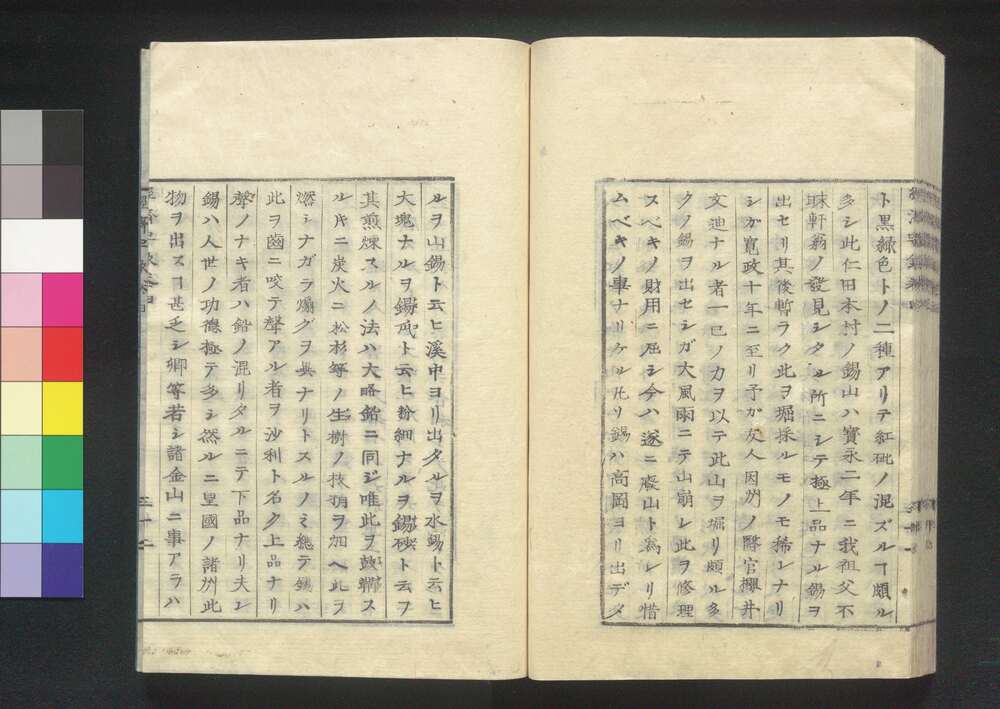 ト黒緑色トノ二種アリテ紅砒ノ混ズルヿ頗ル
多シ此仁田木村ノ錫山ハ寶永二年ニ我祖父不
昧軒翁ノ發見シタル所ニシテ極上品ナル錫ヲ
出セリ其後暫ラク此ヲ堀採ルモノモ稀レナリ
シガ寛政十年ニ至リ予ガ友人因州ノ醫官櫻井
文廸ナル者一已ノカヲ以テ此山ヲ堀リ頗ル多
クノ錫ヲ出セシガ大風雨ニテ山崩レ此ヲ修理
スベキノ財用ニ屈シ今ハ遂ニ廢山ト為レリ惜
ムベキノ事ナリケル凡リ錫ハ高岡ヨリ出デタ
ルヲ山錫ト云ヒ溪中ヨリ出タルヲ水錫ト云ヒ
大塊ナルヲ錫瓜ト云ヒ粉細ナルヲ錫砂ト云フ
其煎煉スルノ法ハ大略鉛ニ同ジ唯此ヲ鼓鞴ス
ルキニ炭火ニ松杉等ノ生樹ノ枝朔ヲ加ヘ此ヲ
燃シナガラ煽グヲ異ナリトスルノミ總テ錫ハ
此ヲ齒ニ咬テ聲アル者ヲ沙利ト名ク上品ナリ
聲ノナキ者ハ鉛ノ混リタルニテ下品ナリ夫レ
錫ハ人世ノ功德極テ多シ然ルニ皇國ノ諸州此
物ヲ出スヿ甚乏シ卿等若シ諸金山ニ事アラハ